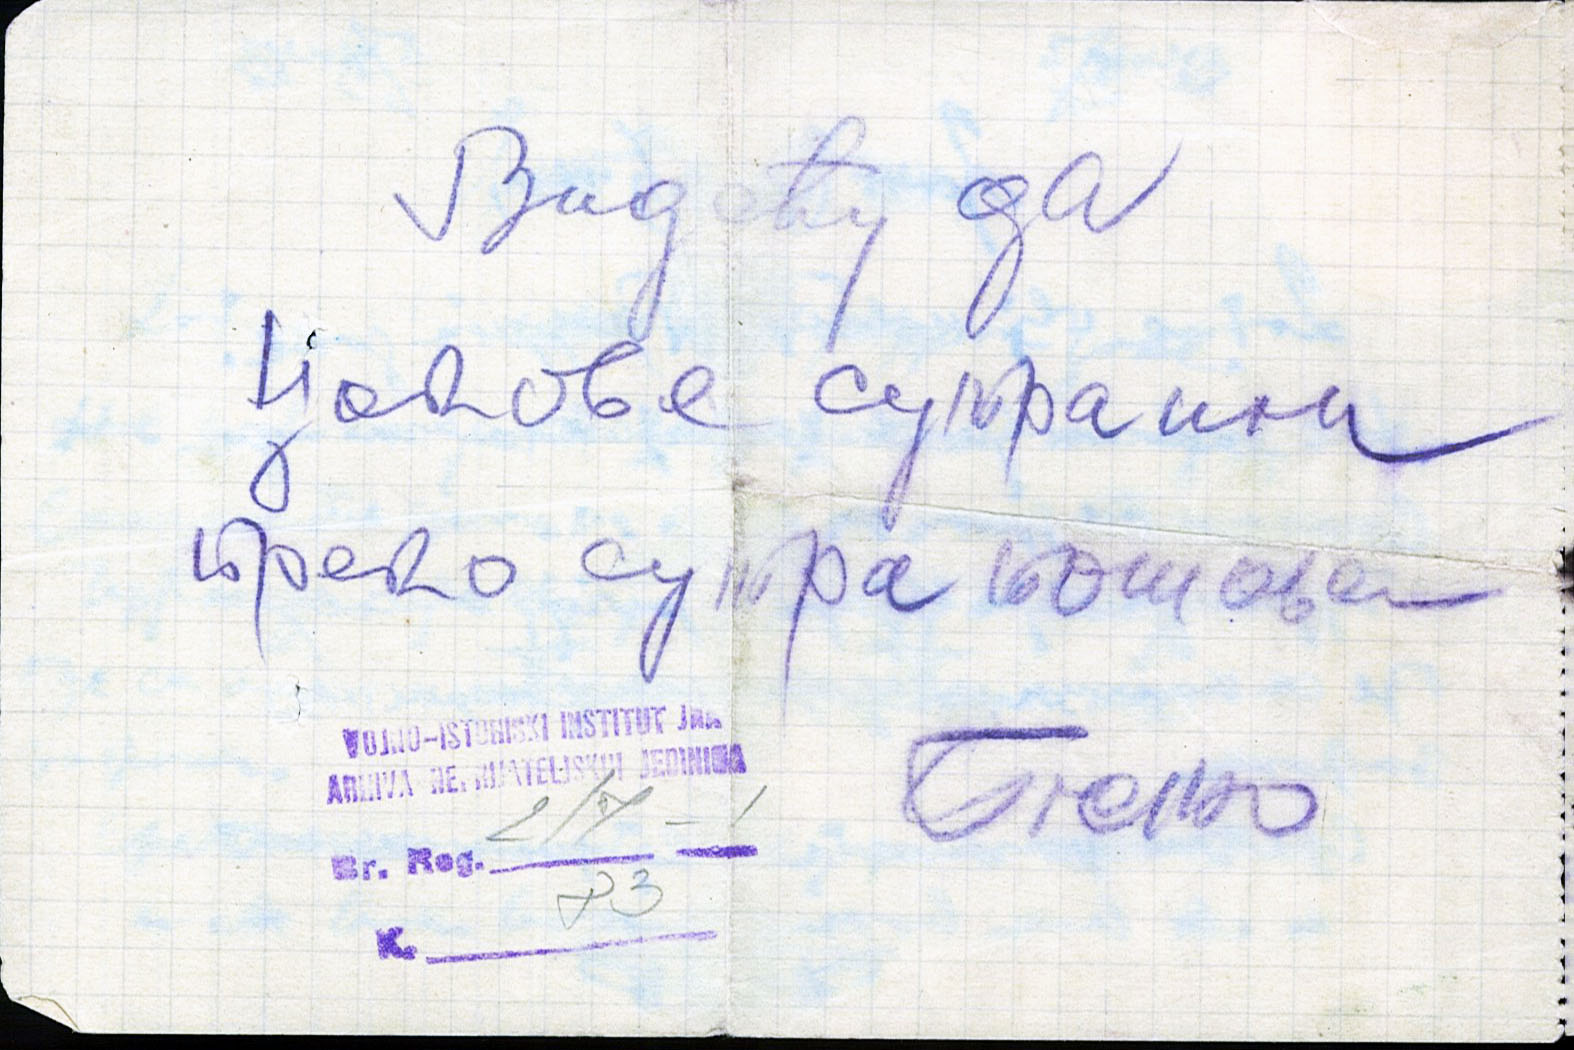 Видећу да
Цокове сутра или
преко сутра пошаљем
VOJNO-ISTORISKI INSTITUT JNA
ARHIVA NEPRIJATELJSKIH JEDINICA
2/7 - 1
Br. Reg.
83
K.